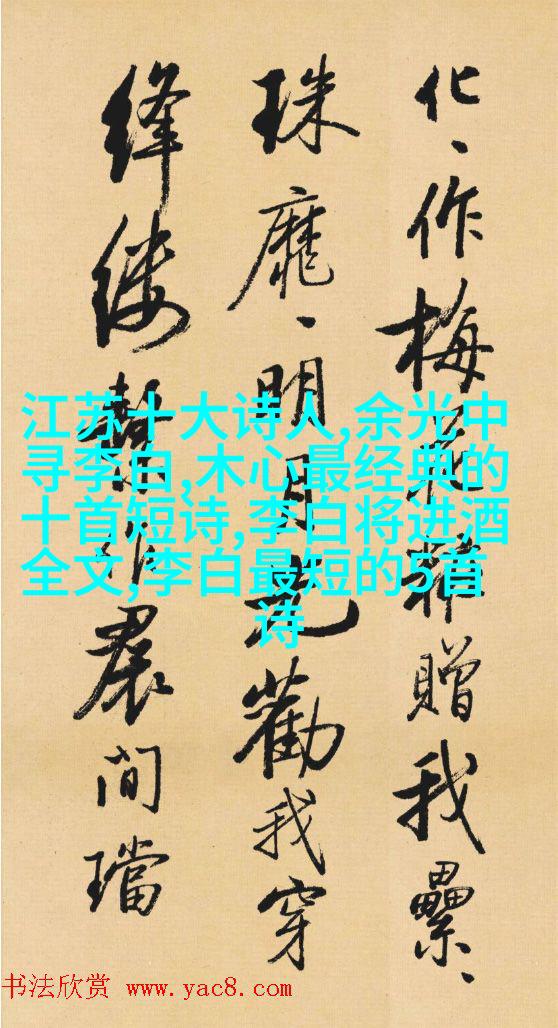 化、作梅花粧贈我纍、
珠靡、明月光勸我穿
絳縷繫作裠間璫
江苏十大诗人,余光中
寻李白,木心最经典的
十首短诗,李白将进酒
全文,李白最短的5首
诗
书法欣赏 www.yac8.com